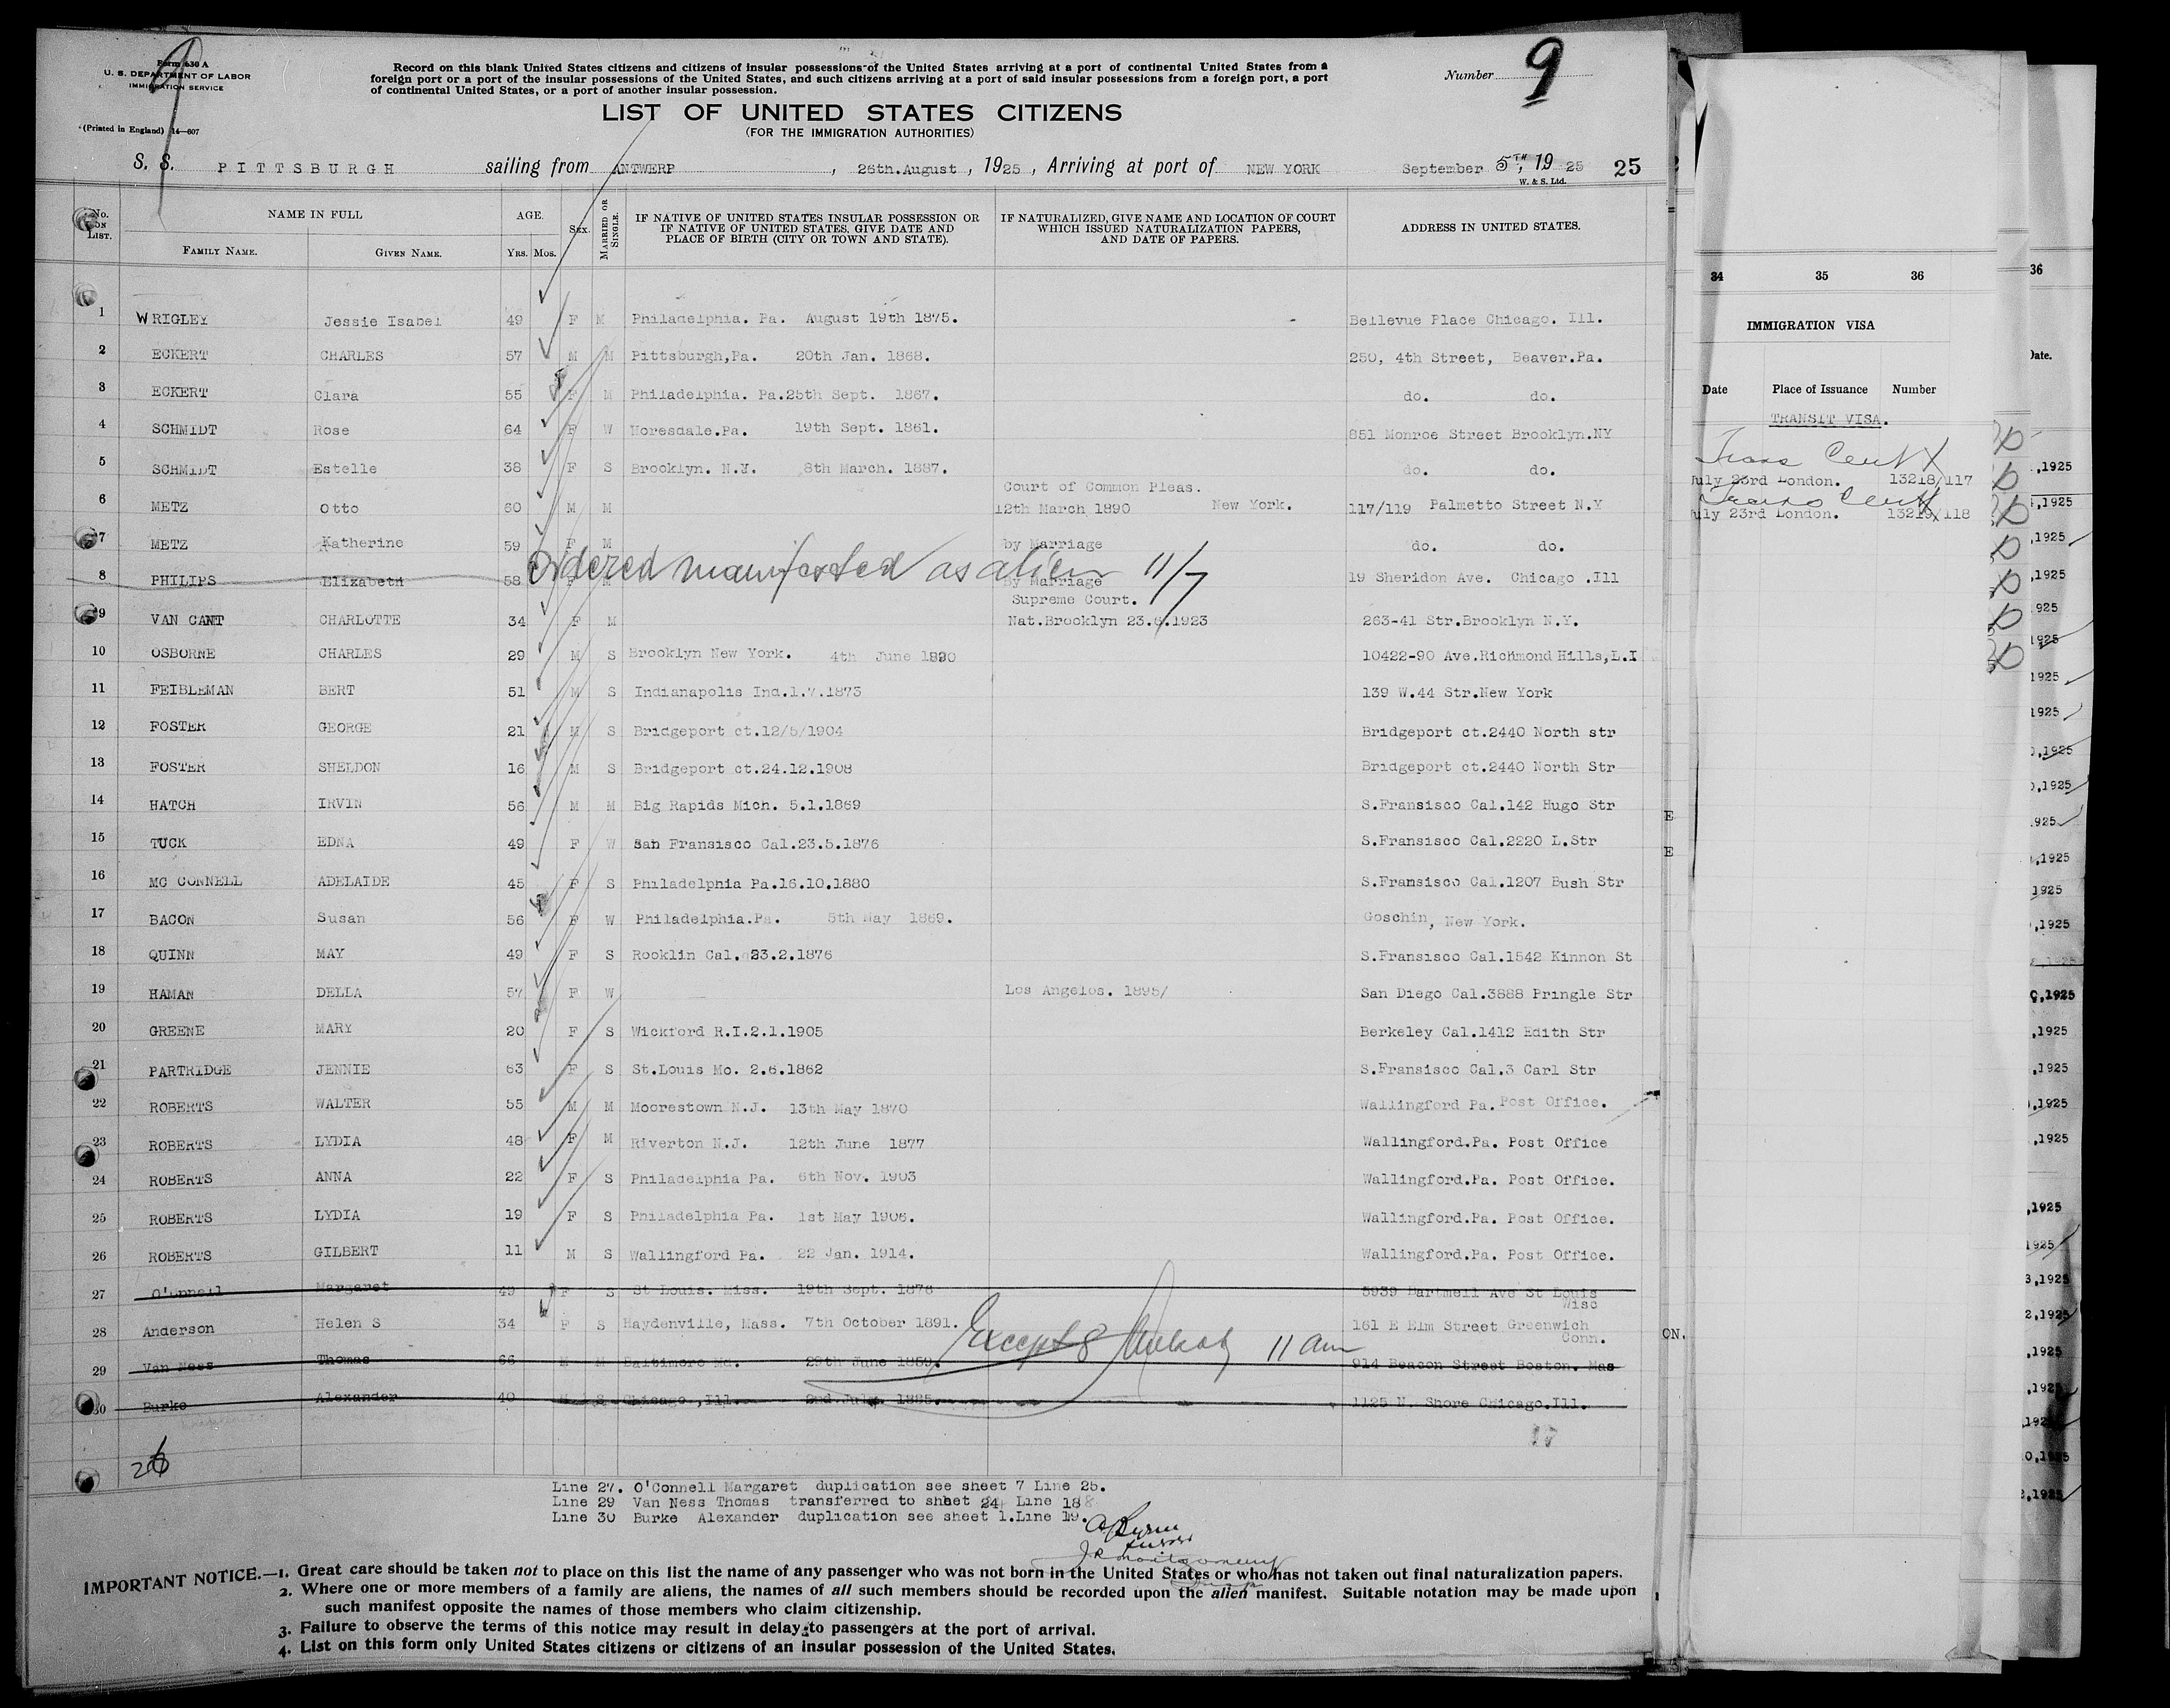 Form 630 A
U. S. DEPARTMENT OF LABOR
IMMIGRATION SERVICE
(Printed in England) 14—607
Record on this blank United States citizens and citizens of insular possessions of the United States arriving at a port of continental United States from a
foreign port or a port of the insular possessions of the United States, and such citizens arriving at a port of said insular possessions from a foreign port, a port
of continental United States, or a port of another insular possession.
Number 9
LIST OF UNITED STATES CITIZENS
(FOR THE IMMIGRATION AUTHORITIES)
S. S. PITTSBURGH sailing from ANTWERP, 26th.August, 1925, Arriving at port of NEW YORK September 5TH, 1925 25
W. & S. Ltd.
No. ON LIST. NAME IN FULL AGE. Sex. MARRIED OR SINGLE. IF NATIVE OF UNITED STATES INSULAR POSSESSION OR IF NATIVE OF UNITED STATES, GIVE DATE AND PLACE OF BIRTH (CITY OR TOWN AND STATE). IF NATURALIZED, GIVE NAME AND LOCATION OF COURT WHICH ISSUED NATURALIZATION PAPERS, AND DATE OF PAPERS. ADDRESS IN UNITED STATES.
FAMILY NAME. GIVEN NAME. YRS. MOS.
1 WRIGLEY Jessie Isabel 49 F M Philadelphia. Pa. August 19th 1875. - Bellevue Place Chicago. Ill.
2 ECKERT CHARLES 57 M M Pittsburgh,Pa. 20th Jan. 1868. 250, 4th Street, Beaver.Pa.
3 ECKERT Clara 55 F M Philadelphia. Pa.25th Sept. 1867. do. do.
4 SCHMIDT Rose 64 F W Horesdale.Pa. 19th Sept. 1861. 851 Monroe Street Brooklyn.NY
5 SCHMIDT Estelle 38 F S Brooklyn. N.Y. 8th March. 1887. do. do.
Court of Common Pleas.
6 METZ Otto 60 M M 12th March 1890 New York. 117/119 Palmetto Street N.Y
7 METZ Katherine 59 F M by Marriage do. do.
ordered manifested as alien 11/7
8 PHILIPS Elizabeth 58 F M By Marriage 19 Sheridon Ave. Chicago .Ill
Supreme Court.
9 VAN CANT CHARLOTTE 34 F M Nat.Brooklyn 23.6.1923 263-41 Str.Brooklyn N.Y.
10 OSBORNE CHARLES 29 M S Brooklyn New York. 4th June 1890 10422-90 Ave.Richmond Hills,L.I
11 FEIBLEMAN BERT 51 M S Indianapolis Ind.1.7.1873 139 W.44 Str.New York
12 FOSTER GEORGE 21 M S Bridgeport ct.12/5/1904 Bridgeport ct.2440 North str
13 FOSTER SHELDON 16 M S Bridgeport ct.24.12.1908 Bridgeport ct.2440 North Str
14 HATCH IRVIN 56 M M Big Rapids Mich. 5.1.1869 S.Fransisco Cal.142 Hugo Str
15 TUCK EDNA 49 F W San Fransisco Cal.23.5.1876 S.Fransisco Cal.2220 L.Str
16 MC CONNELL ADELAIDE 45 F S Philadelphia Pa.16.10.1880 S.Fransisco Cal.1207 Bush Str
17 BACON Susan 56 F W Philadelphia.Pa. 5th May 1869. Goschin, New York.
18 QUINN MAY 49 F S Rocklin Cal. 23.2.1876 S.Fransisco Cal.1542 Kinnon St
19 HAMAN DELLA 57 F W Los Angelos. 1895/ San Diego Cal.3888 Pringle Str
20 GREENE MARY 20 F S Wickford R.I.2.1.1905 Berkeley Cal.1412 Edith Str
21 PARTRIDGE JENNIE 63 F S St.Louis Mo. 2.6.1862 S.Fransisco Cal.3 Carl Str
22 ROBERTS WALTER 55 M M Moorestown N.J. 13th May 1870 Wallingford Pa. Post Office.
23 ROBERTS LYDIA 48 F M Riverton N.J. 12th June 1877 Wallingford.Pa. Post Office
24 ROBERTS ANNA 22 F S Philadelphia Pa. 6th Nov. 1903 Wallingford.Pa. Post Office.
25 ROBERTS LYDIA 19 F S Philadelphia Pa. 1st May 1906. Wallingford.Pa. Post Office.
26 ROBERTS GILBERT 11 M S Wallingford Pa. 22 Jan. 1914. Wallingford.Pa. Post Office.
27 O'Connell Margaret 49 F S St Louis. Miss. 19th Sept. 1876 5939 Bartmell Ave St Louis
Wisc
28 Anderson Helen S 34 F S Haydenville, Mass. 7th October 1891. 161 E Elm Street Greenwich
Conn.
Except 8 11 am
29 Van Ness Thomas 66 M M Baltimore Md. 29th June 1859. 914 Beacon Street Boston. Mas
30 Burke Alexander 40 M S Chicago.,Ill. 2nd July. 1885. 1125 N. Shore Chicago.Ill.
26
Line 27. O'Connell Margaret duplication see sheet 7 Line 25.
Line 29 Van Ness Thomas transferred to sheet 24 Line 18
Line 30 Burke Alexander duplication see sheet 1.Line 19.
J R Montgomery
IMPORTANT NOTICE.—1. Great care should be taken not to place on this list the name of any passenger who was not born in the United States or who has not taken out final naturalization papers.
2. Where one or more members of a family are aliens, the names of all such members should be recorded upon the alien manifest. Suitable notation may be made upon
such manifest opposite the names of those members who claim citizenship.
3. Failure to observe the terms of this notice may result in delay to passengers at the port of arrival.
4. List on this form only United States citizens or citizens of an insular possession of the United States.
34 35 36
IMMIGRATION VISA
Date Place of Issuance Number
TRANSIT VISA.
Trans Cert
July 23rd London. 13218/117
Trans Cert
July 23rd London. 13219/118
36
Date.